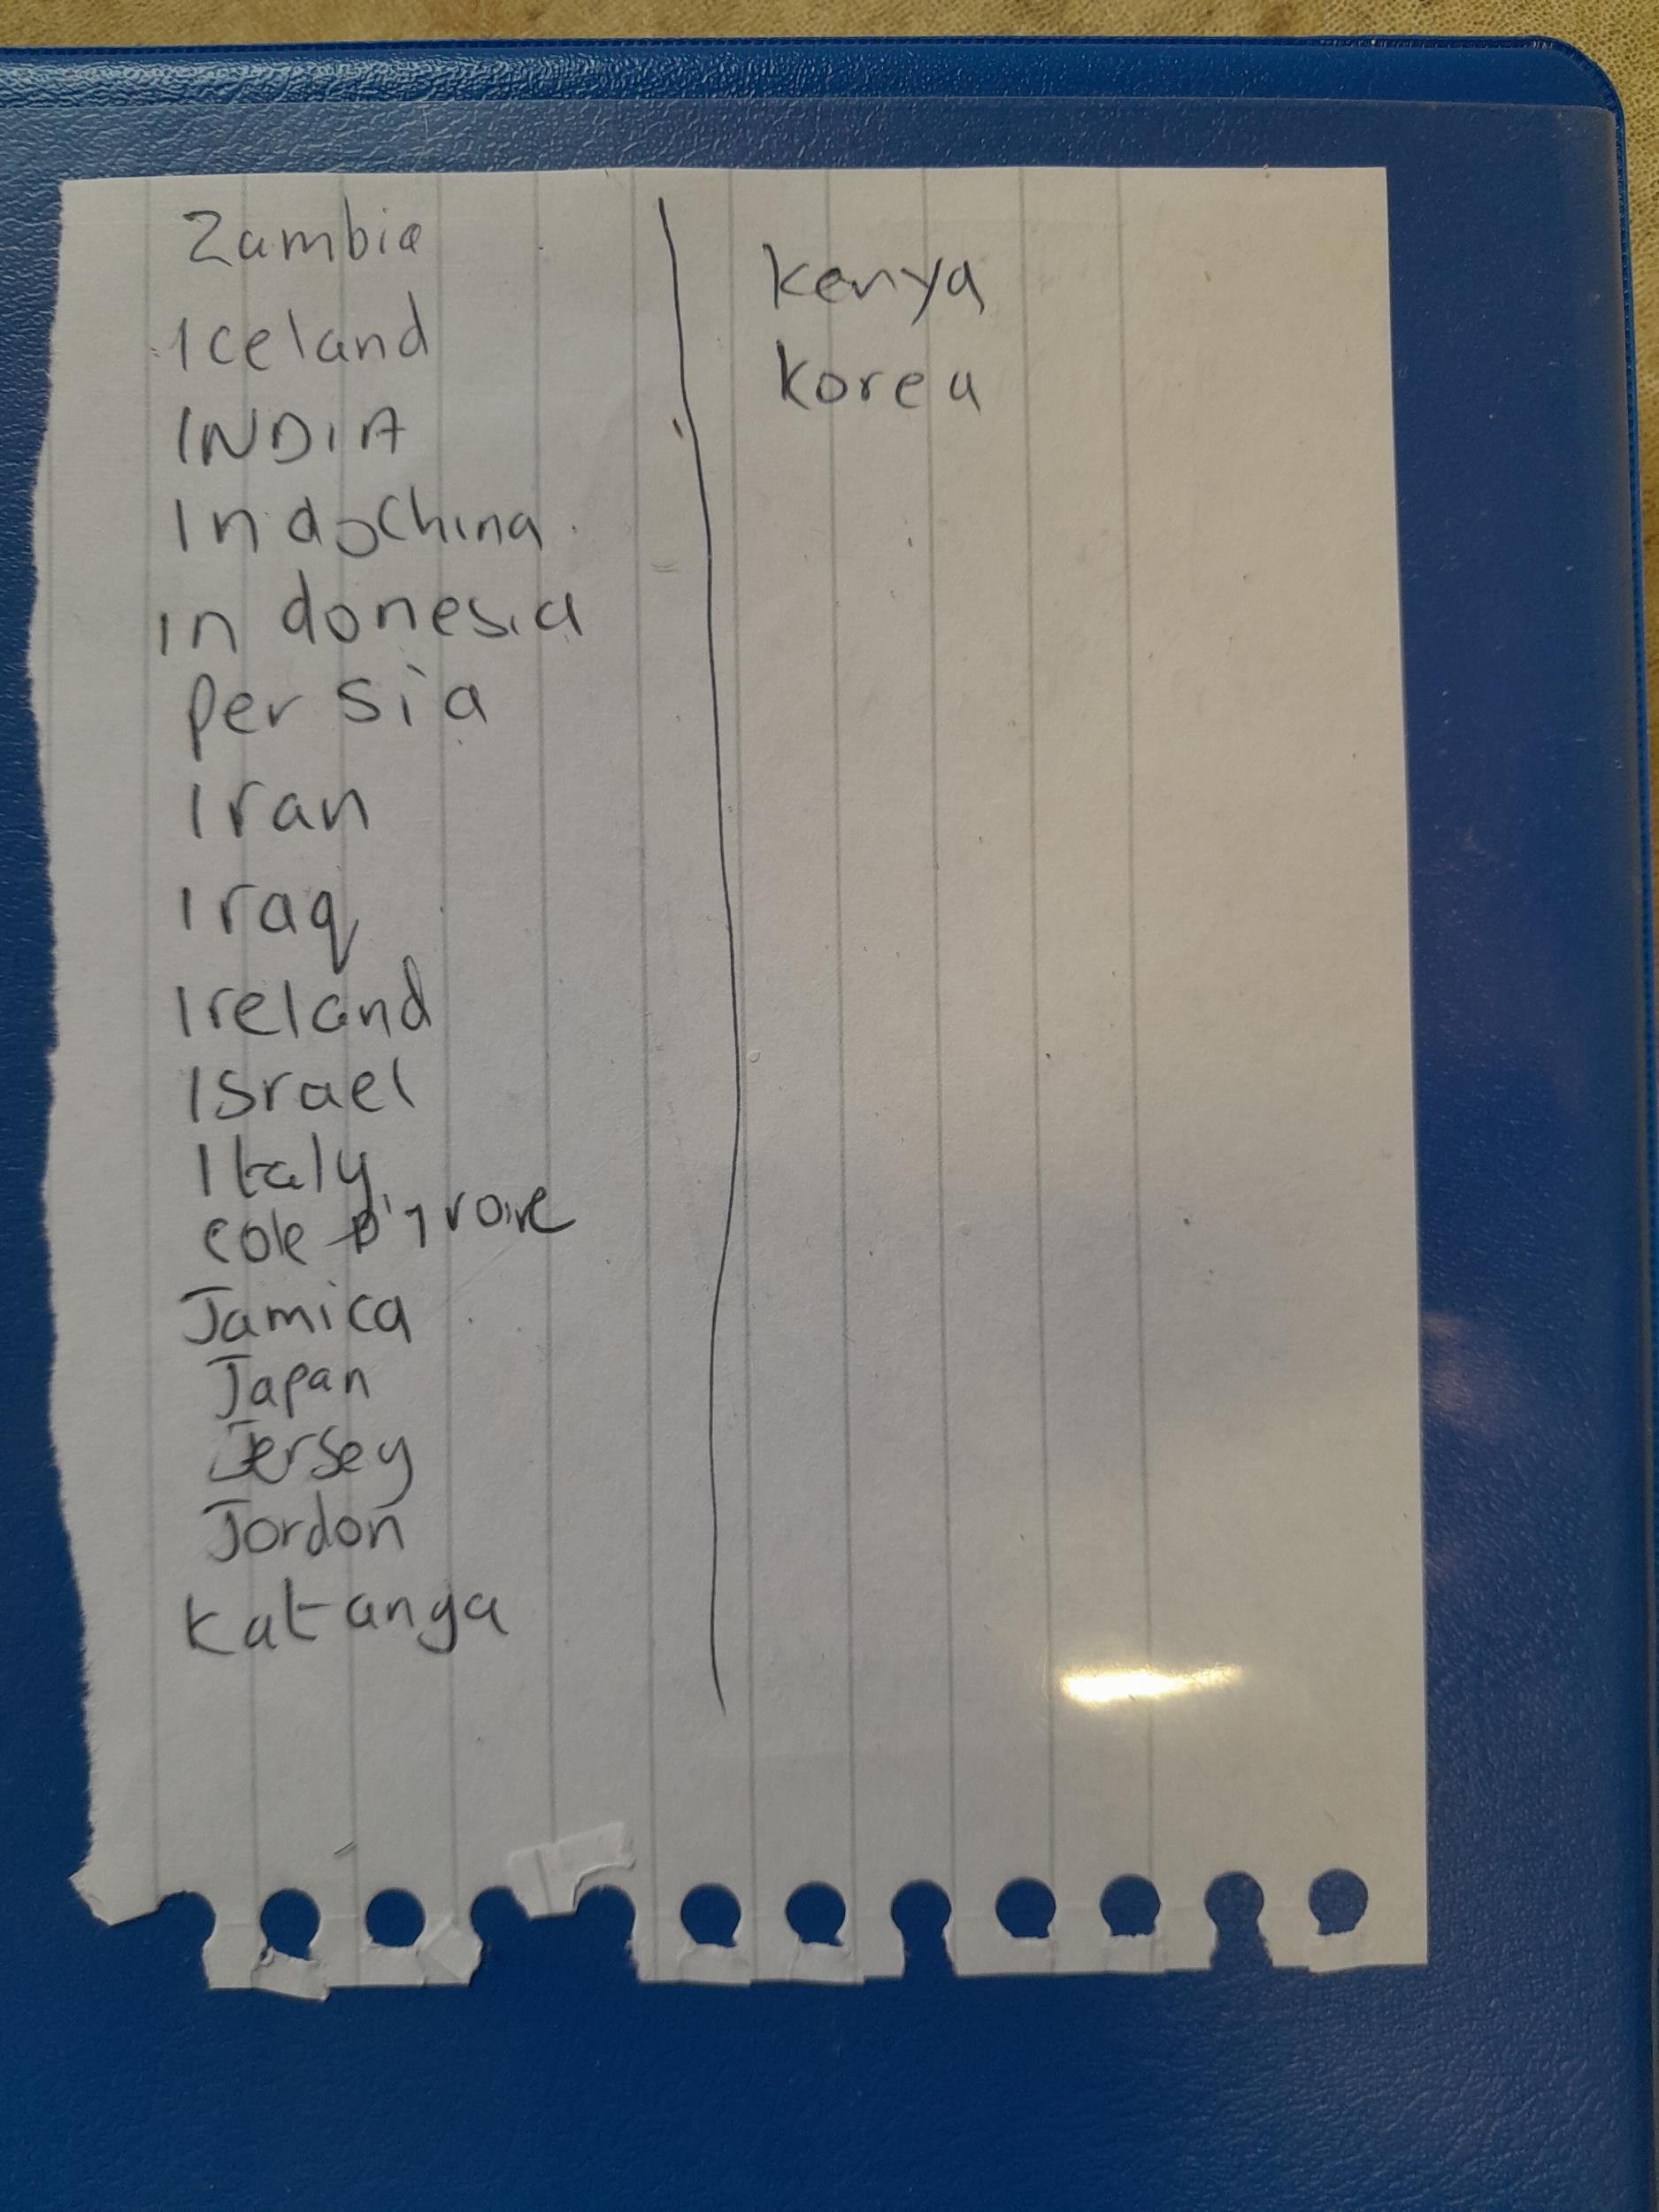 Zambia
Iceland
INDIA
Indochina
indonesia
persia
Iran
Iraq
Ireland
Israel
Italy
cote D'Ivoire
Jamica
Japan
Jersey
Jordon
Katanga
Kenya
Korea